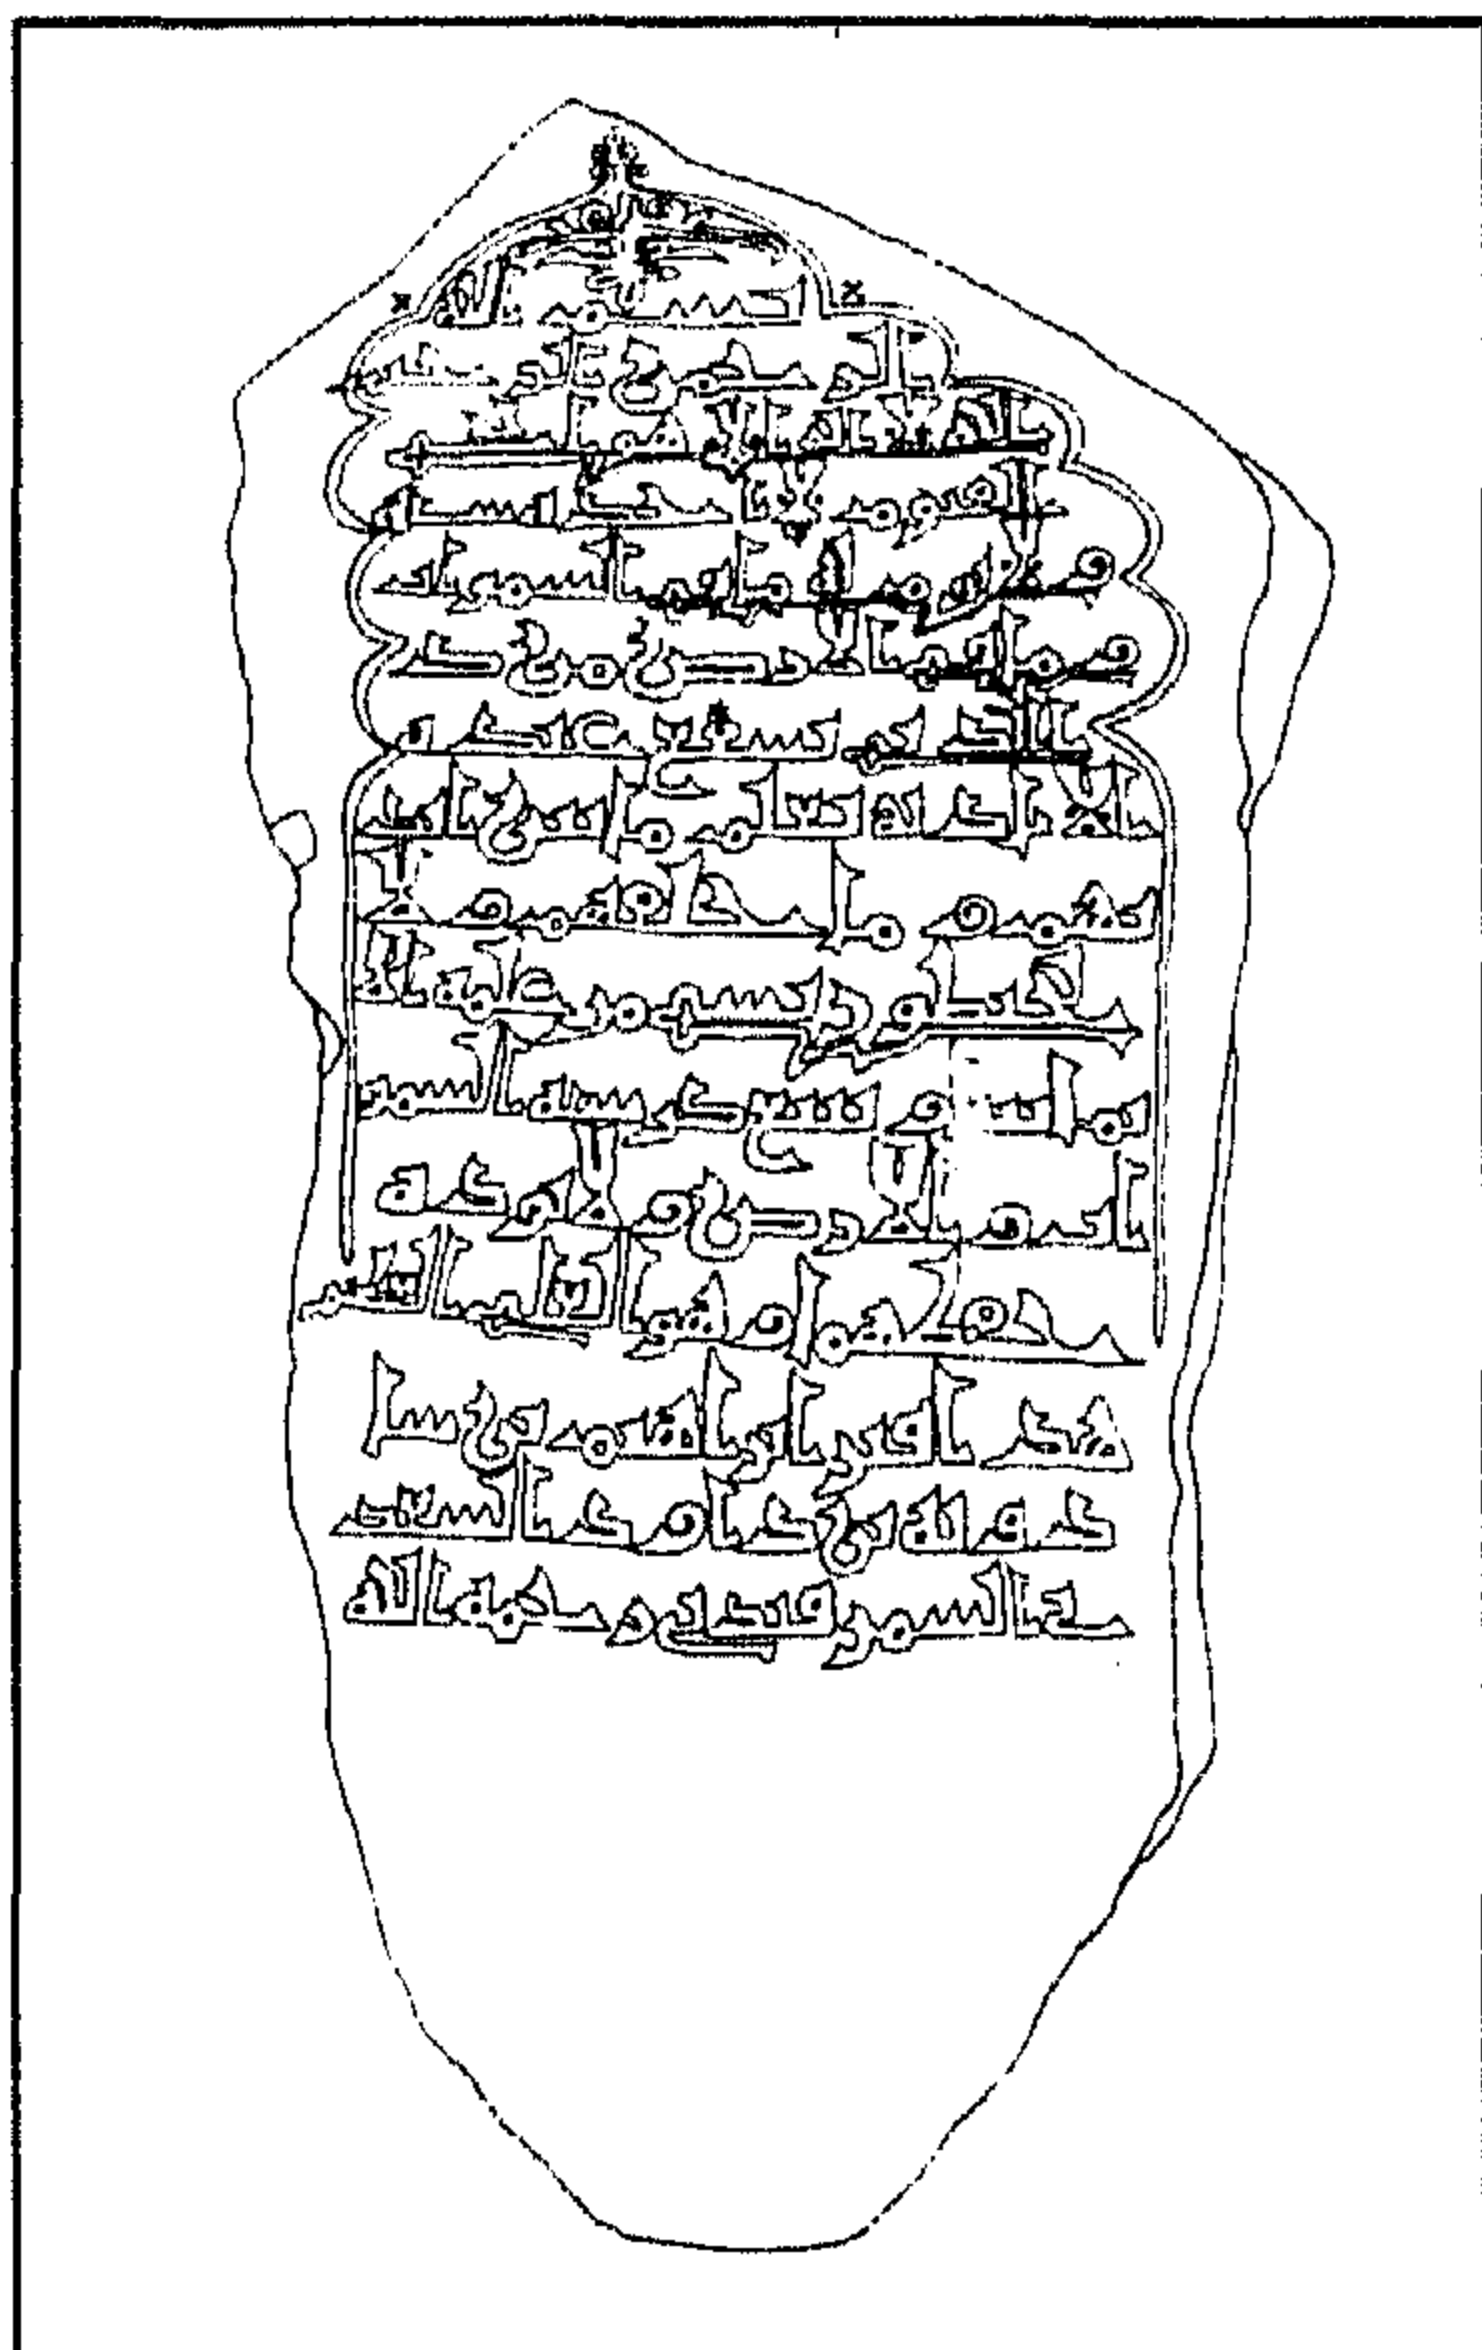 بسم الله
الرحمن الرحيم
الله لا اله الا هو الحي
القيوم لا تاخذه سنة
ولا نوم له ما في السموات
وما في الارض من ذا
الذي يشفع عنده
الا باذنه يعلم ما بين ايد
يهم وما خلفهم ولا
يحيطون بشي من علمه الا
بما شا وسع كرسيه السمو
ات والارض ولا يوده
حفظهما وهو العلي العظيم
هذا القبر ابرهيم بن
عبد الله بن
السمرقندي رحمه الله